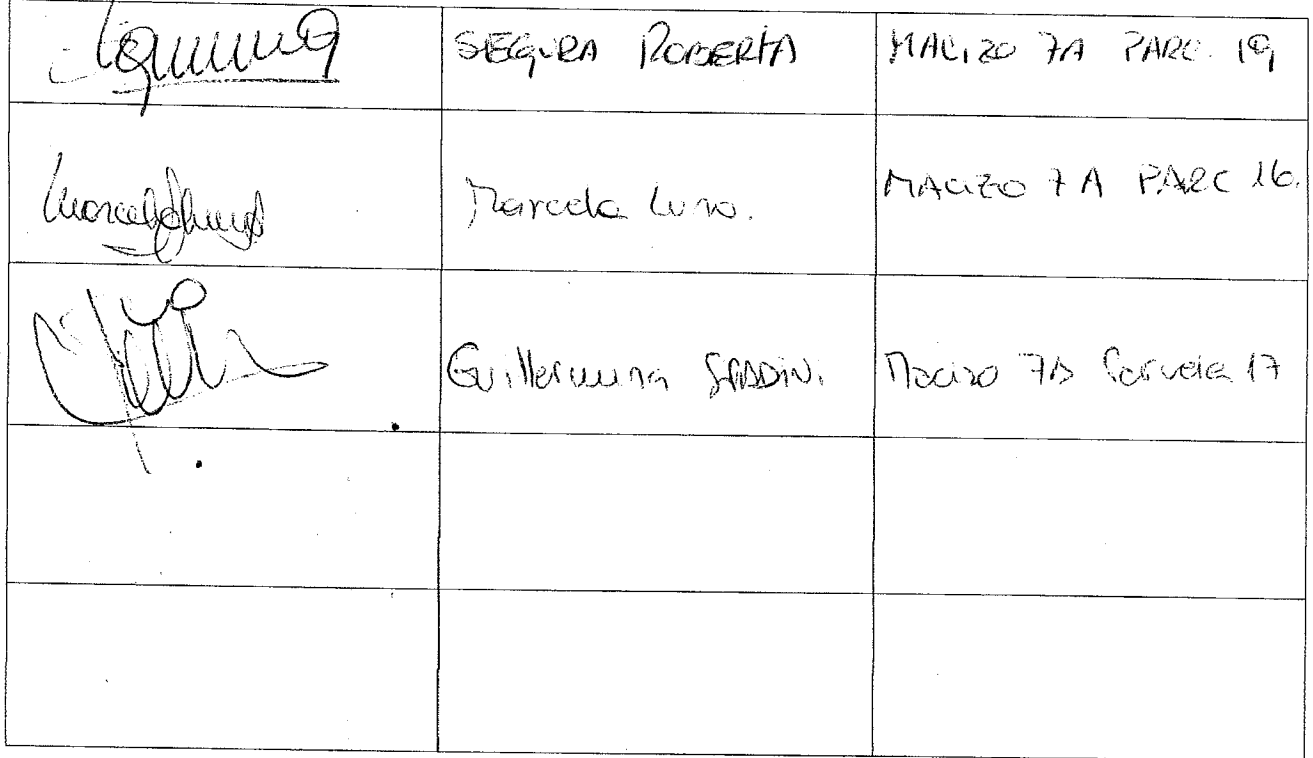 SEGURA ROBERTA
MACIZO 7A PARC. 19
Marcela Luna.
MACIZO 7A PARC 16.
Guillermina
Macizo 7A Parcela 17